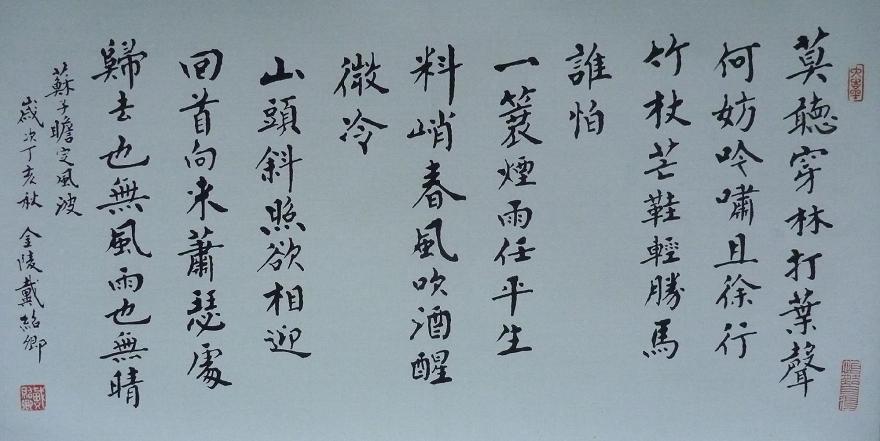 莫聽穿林打葉聲
何妨吟嘯且徐行
竹杖芒鞋輕勝馬
誰怕
一蓑煙雨任平生
料峭春風吹酒醒
微冷
山頭斜照欲相迎
回首向来蕭瑟處
歸去也無風雨也無晴
蘇子瞻定風波
歲次丁亥秋 金陵戴紹卿